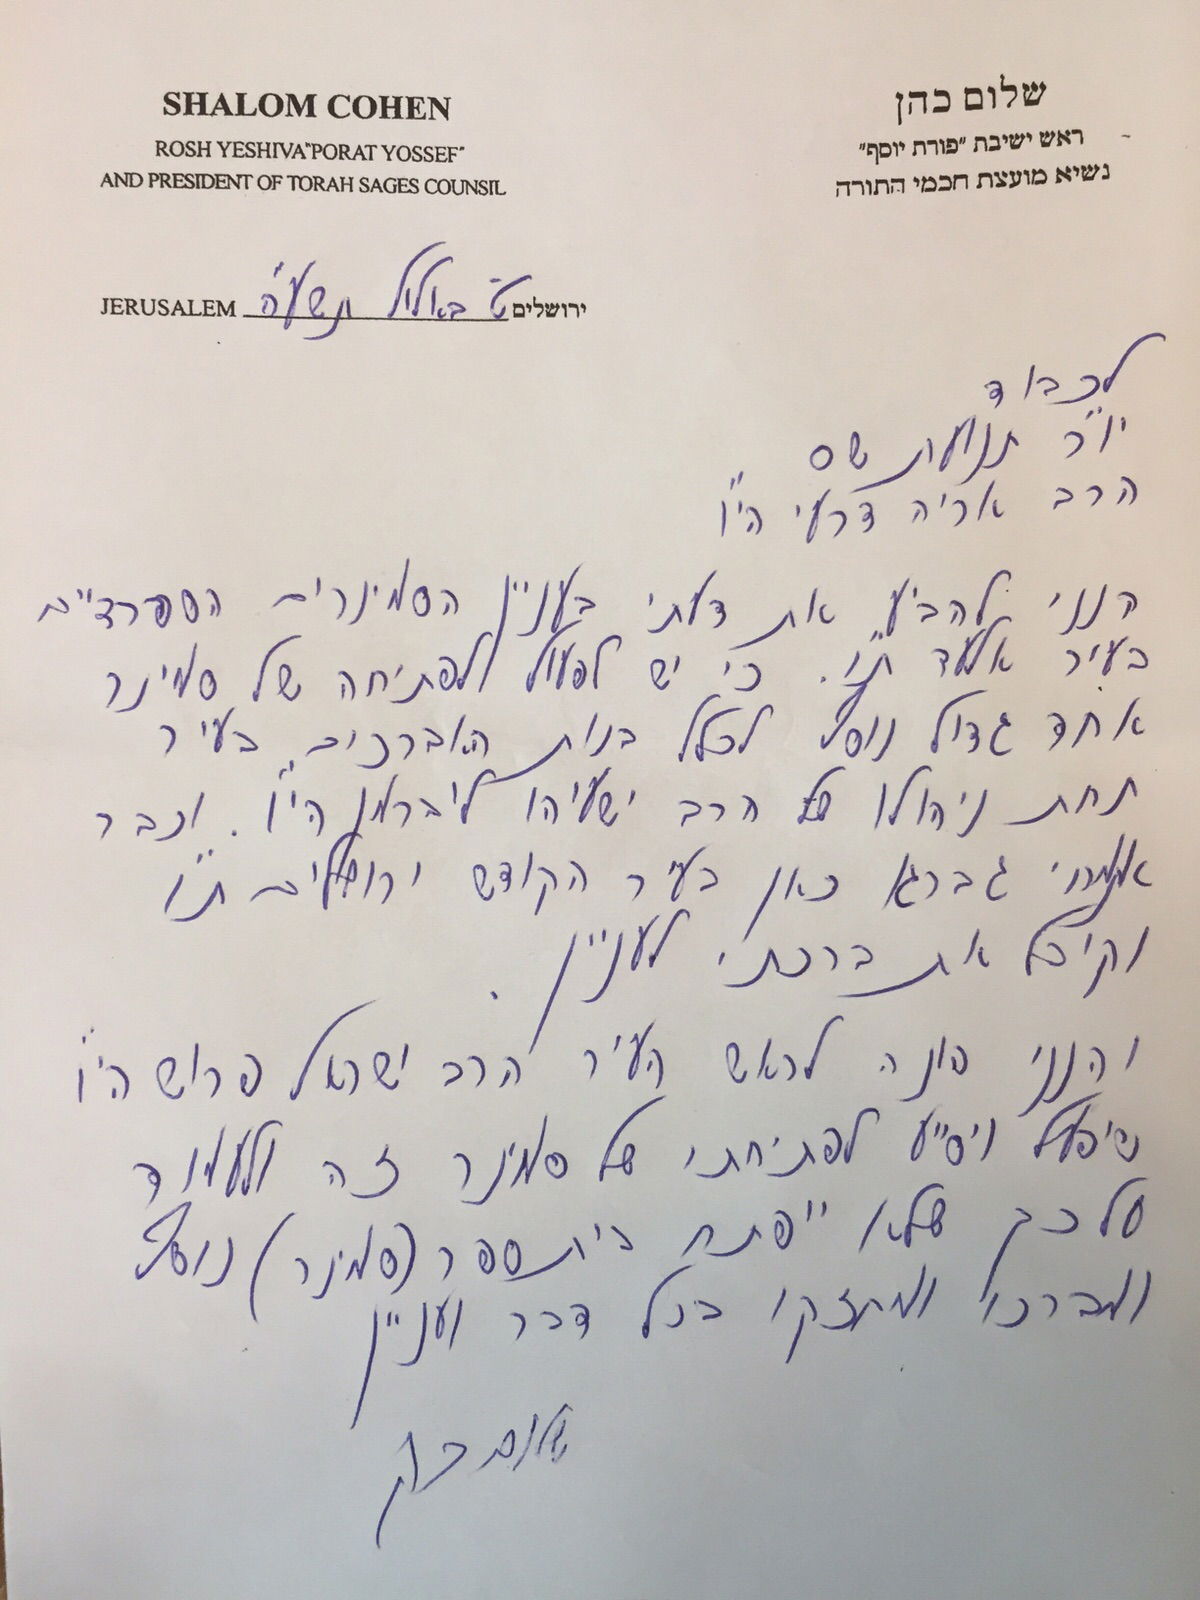 SHALOM COHEN
ROSH YESHIVA"PORAT YOSSEF"
AND PRESIDENT OF TORAH SAGES COUNSIL
שלום כהן
ראש ישיבת "פורת יוסף"
נשיא מועצת חכמי התורה
JERUSALEM ט' באלול תשע"ה ירושלים
לכבוד
יו"ר תנועת שס
הרב אריה דרעי הי"ו
הנני להביע את דעתי בעניין הסמינרים הספרדיים
בעיר אלעד ת"ו. כי יש לפעול לפתיחה של סמינר
אחד גדול נוסף לכלל בנות האברכים בעיר
תחת ניהולו של הרב ישעיהו ליברמן הי"ו. וכבר
גברא כאן בעיר הקודש ירושלים ת"ו
וקיבל את ברכתי לעניין.
והנני פונה לראש העיר הרב ישראל פרוש הי"ו
שיפעל ויסייע לפתיחתו של סמינר זה ולעמוד
על כך שלא ייפתח בית ספר (סמינר) נוסף
ומברכו ומחזקו בכל דבר ועניין
שלום כהן